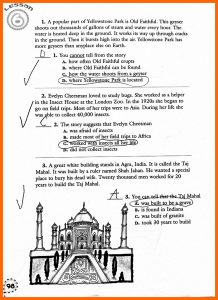 Lesson
6
1. A popular part of Yellowstone Park is Old Faithful. This geyser
shoots out thousands of gallons of steam and water every hour. The
water is buried deep in the ground. It works its way up through cracks
in the ground. Then it bursts high into the air. Yellowstone Park has
more geysers than anyplace else on Earth.
D 1. You cannot tell from the story
a. how often Old Faithful erupts
b. where Old Faithful can be found
c. how the water shoots from a geyser
d. where Yellowstone Park is located
2. Evelyn Cheesman loved to study bugs. She worked as a helper
in the Insect House at the London Zoo. In the 1920s she began to
go on field trips. Most of her trips were to Asia. During her life she
was able to collect 40,000 insects.
C 2. The story suggests that Evelyn Cheesman
a. was afraid of insects
b. made most of her field trips to Africa
c. worked with insects all her life
d. did not collect insects
3. A great white building stands in Agra, India. It is called the Taj
Mahal. It was built by a ruler named Shah Jahan. He wanted a special
place to bury his dead wife. Twenty thousand men worked for 20
years to build the Taj Mahal.
A 3. You can tell that the Taj Mahal
a. was built to be a grave
b. is found in Indiana
c. was built of granite
d. took 30 years to build